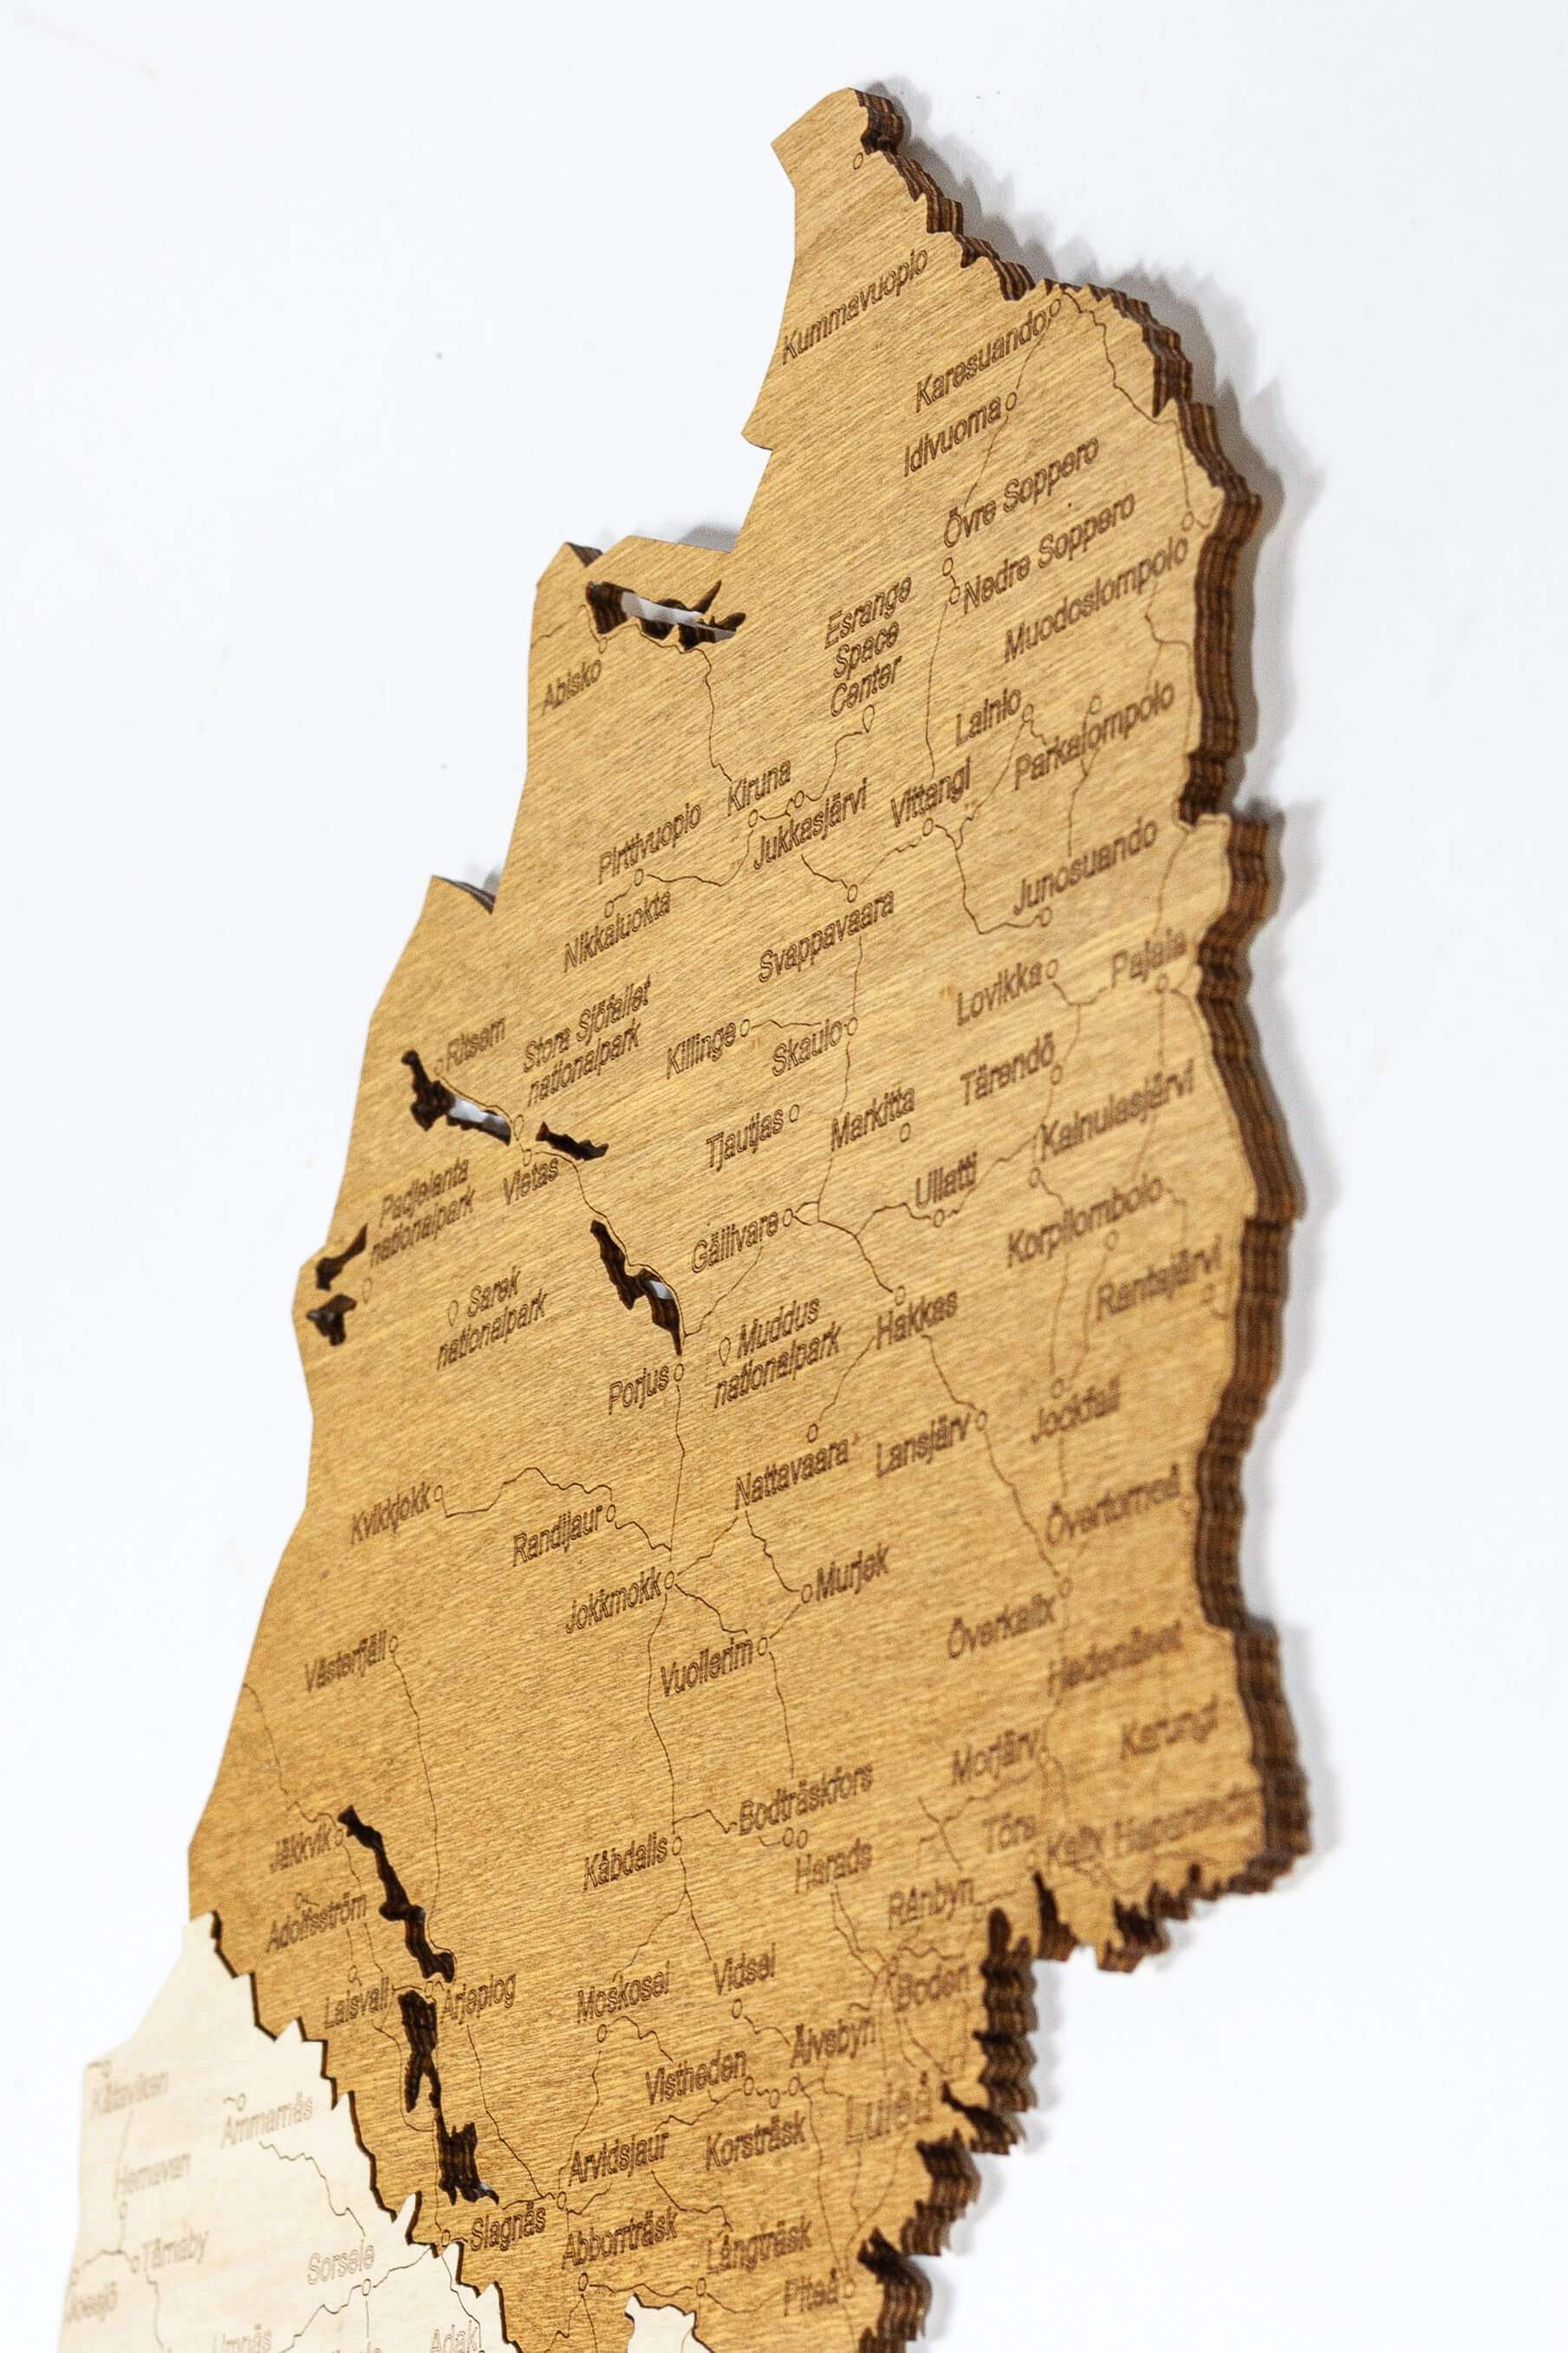 Kummavuopio
Karesuando
Idivuoma
Övre Soppero
Nedre Soppero
Muodoslompolo
Esrange
Space
Center
Abisko
Lainio
Parkalompolo
Kiruna
Jukkasjärvi
Vittangi
Pirttivuopio
Nikkaluokta
Junosuando
Svappavaara
Lovikka
Pajala
Ritsem
Stora Sjöfallet
nationalpark
Killinge
Skaulo
Tärendö
Tjautjas
Markitta
Kainulasjärvi
Padjelanta
nationalpark
Vietas
Ullatti
Gällivare
Korpilombolo
Sarek
nationalpark
Muddus
nationalpark
Hakkas
Rantsjärvi
Porjus
Jockfall
Nattavaara
Lansjärv
Kvikkjokk
Randijaur
Övertorneå
Jokkmokk
Murjek
Överkalix
Västerfjäll
Vuollerim
Hedenäset
Karungi
Morjärv
Bodträskfors
Töre
Kalix
Jäkkvik
Kåbdalis
Harads
Adolfsström
Rånbyn
Laisvall
Arjeplog
Moskosel
Vidsel
Boden
Vistheden
Älvsbyn
Luleå
Arvidsjaur
Korsträsk
Slagnäs
Abborrträsk
Långträsk
Piteå
Ammarnäs
Hemavan
Tärnaby
Sorsele
Umnäs
Adak